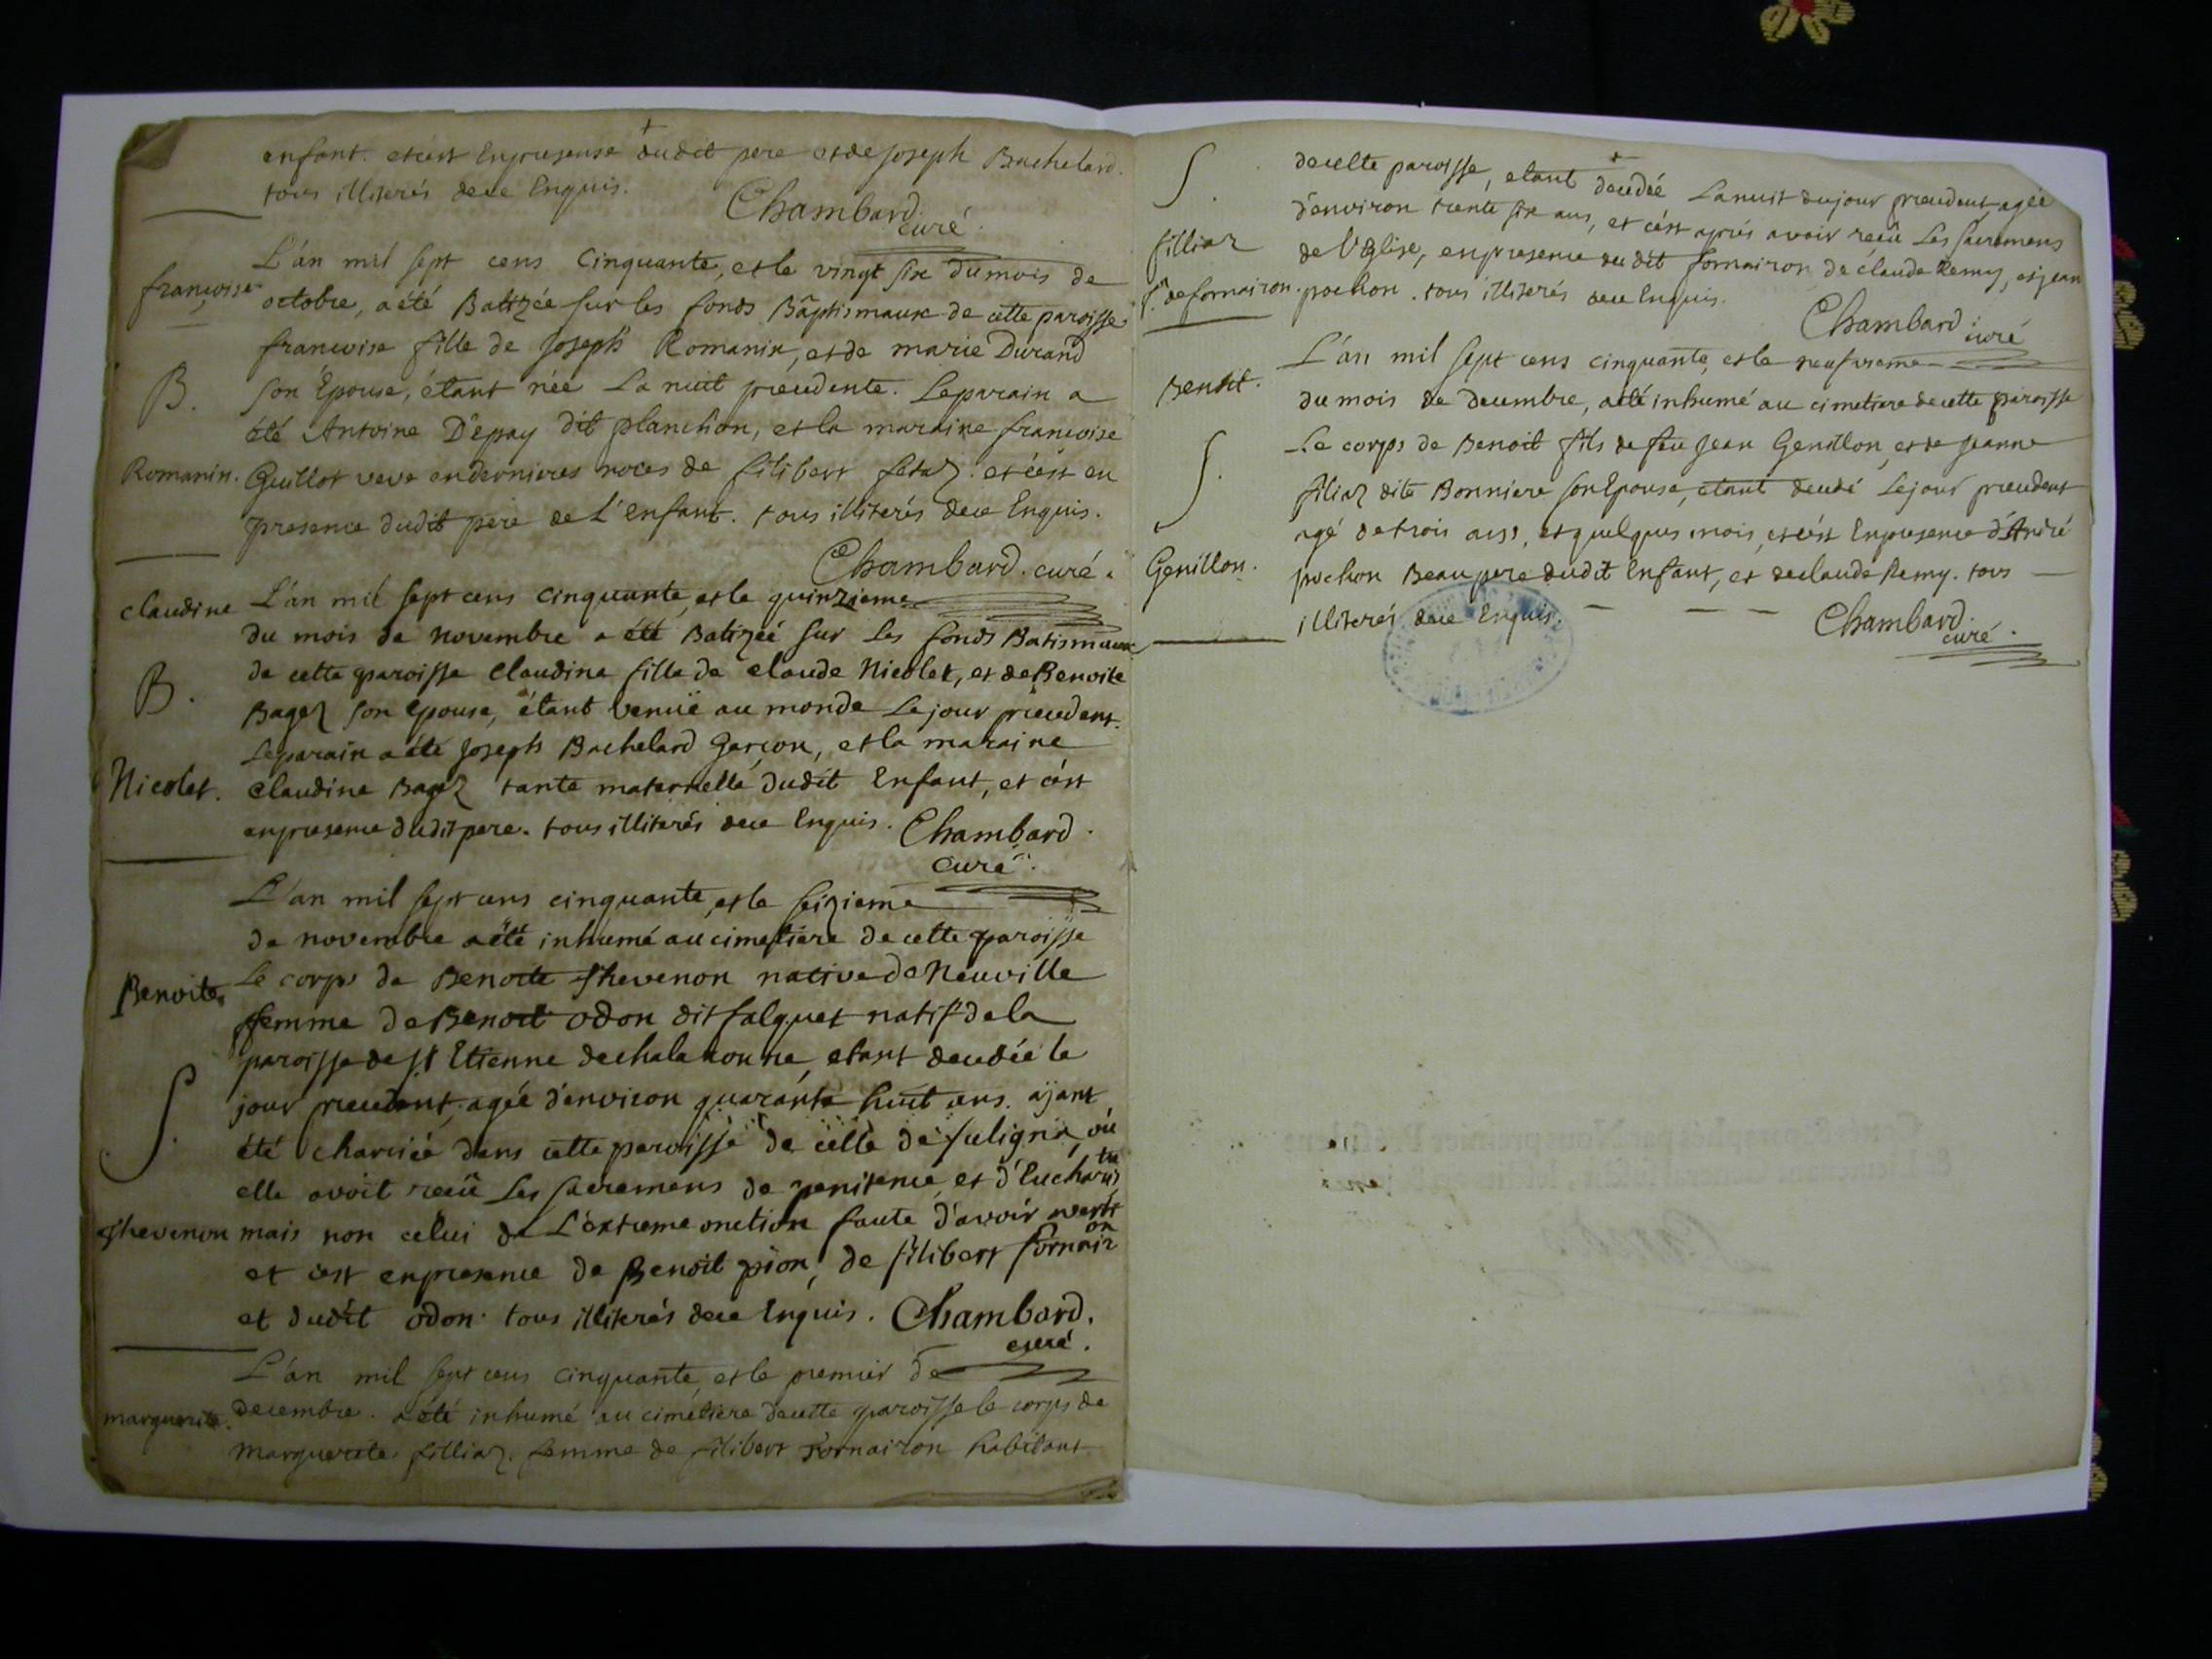 enfant. et c'est Enpresense dudit pere et de joseph Bachelard.
tous illiterés de ce Enquis.
Chambard
curé.
L'an mil sept cens Cinquante, et le vingt six du mois de
françoise
octobre, a été Batizée sur les fonds Bâptismaux de cette paroisse
francoise fille de Joseph Romanin, et de marie Durand
B.
son Epouse, étant née La nuit precedente. Le parain a
été Antoine Dépay dit planchon, et la maraine francoise
Romanin.
Guillot veve en dernieres noces de filibert fetaz. et c'est en
presence dudit pere de L'enfant. tous illiterés de ce Enquis.
Chambard. curé.
claudine
L'an mil sept cens cinquante, et le quinzieme
du mois de novembre a été Batizéé sur les fonds Batismaux
de cette paroisse Claudine fille de claude Nicolet, et de Benoite
B.
Bagez son epouse, étant venüe au monde Le jour precedent.
Le parain a été joseph Bachelard Garçon, et la maraine
Nicolet.
Claudine Bagez tante maternelle dudit Enfant, et c'est
enpresence dudit pere. tous illiterés de ce Enquis. Chambard.
curé.
L'an mil sept cens cinquante, et le seizieme
de novembre a été inhumé au cimetiere de cette paroisse
Benoite
Le corps de Benoite Thevenon native de Neuville
femme de Benoit odon dit falquet natif de la
paroisse de St Etienne de chalaronne, etant decedée le
S.
jour precedent, agée d'environ quarante huit ans. ajant
été charriée dans cette paroisse de celle de suligna, où
elle avoit reçû Les sacremens de penitence, et d'Eucharistie
Thevenon
mais non celui de L'extreme onction faute d'avoir averti
et c'est enpresence de Benoit pion, de filibert fornairon
et dudit odon. tous illiterés de ce Enquis. Chambard.
curé.
L'an mil sept cens cinquante, et le premier de
marguerite.
decembre. a été inhumé au cimetiere de cette paroisse le corps de
marguerite filliaz. femme de filibert fornairon habitant
S.
de cette paroisse, etant decedée La nuit du jour precedent, agée
d'environ trente six ans, et c'est aprés avoir reçû Les sacremens
filliaz
de l'Eglise, enpresence du dit fornairon, de claude Remy, et jean
f. de fornairon.
pochon. tous illiterés de ce Enquis.
Chambard.
curé
L'an mil sept cens cinquante, et le neufvieme
Benoit.
du mois de decembre, a été inhumé au cimetiere de cette paroisse
Le corps de Benoit fils de feu jean Genillon, et de jeanne
S.
filiaz dite Bonniere son Epouse, etant decedé Le jour precedent
agé de trois ans, et quelques mois, et c'est Enpresence d'André
Genillon.
pochon Beaupere dudit Enfant, et de claude Remy. tous
illiterés de ce Enquis.
Chambard.
curé.